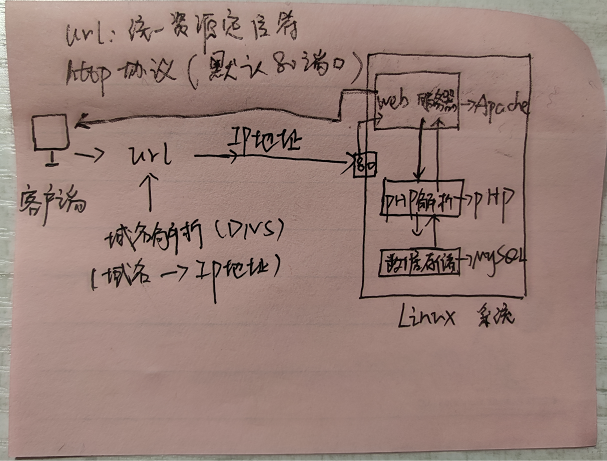 url：统一资源定位符
http协议（默认80端口）
web 服务器→Apache
IP地址
→ url →
80
客户端
PHP解析→PHP
域名解析（DNS）
（域名→IP地址）
→MySQL
Linux 系统